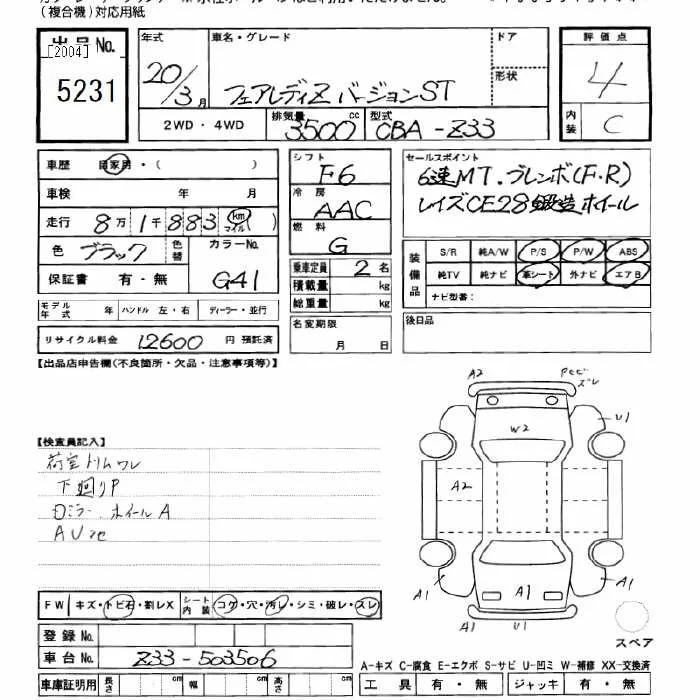 (複合機)対応用紙
出品No.
[2004]
5231
年式
20/3月
車名・グレード
フェアレディZ バージョンST
ドア
形状
評価点
4
内装
C
2WD・4WD
排気量
3500cc
型式
CBA-Z33
車歴 自家用・( )
車検 年 月
走行 8万1千883 km マイル( )
色 ブラック 色替 カラーNo. G41
保証書 有・無
シフト F6
冷房 AAC
燃料 G
乗車定員 2名
積載量 kg
総重量 kg
セールスポイント
6速MT.ブレンボ(F・R)
レイズCE28鍛造ホイール
装備品
S/R 純A/W P/S P/W ABS
純TV 純ナビ 革シート 外ナビ エアB
ナビ型番:
モデル年式 年 ハンドル 左・右 ディーラー・並行
リサイクル料金 12600 円 預託済
名変期限 月 日
後日品
【出品店申告欄(不良箇所・欠品・注意事項等)】
A2
U1
W2
A2
【検査員記入】
荷室トリムワレ
下廻りP
ホイールA
A1
A1
A1
A1 U1
スペア
FW キズ・トビ石・割レX シート内装 コゲ・穴・汚レ・シミ・破レ・スレ
登録No.
車台No. Z33-503506
A-キズ C-腐食 E-エクボ S-サビ U-凹ミ W-補修 XX-交換済
車庫証明用 長さ cm 幅 cm 高さ cm
工具 有・無 ジャッキ 有・無